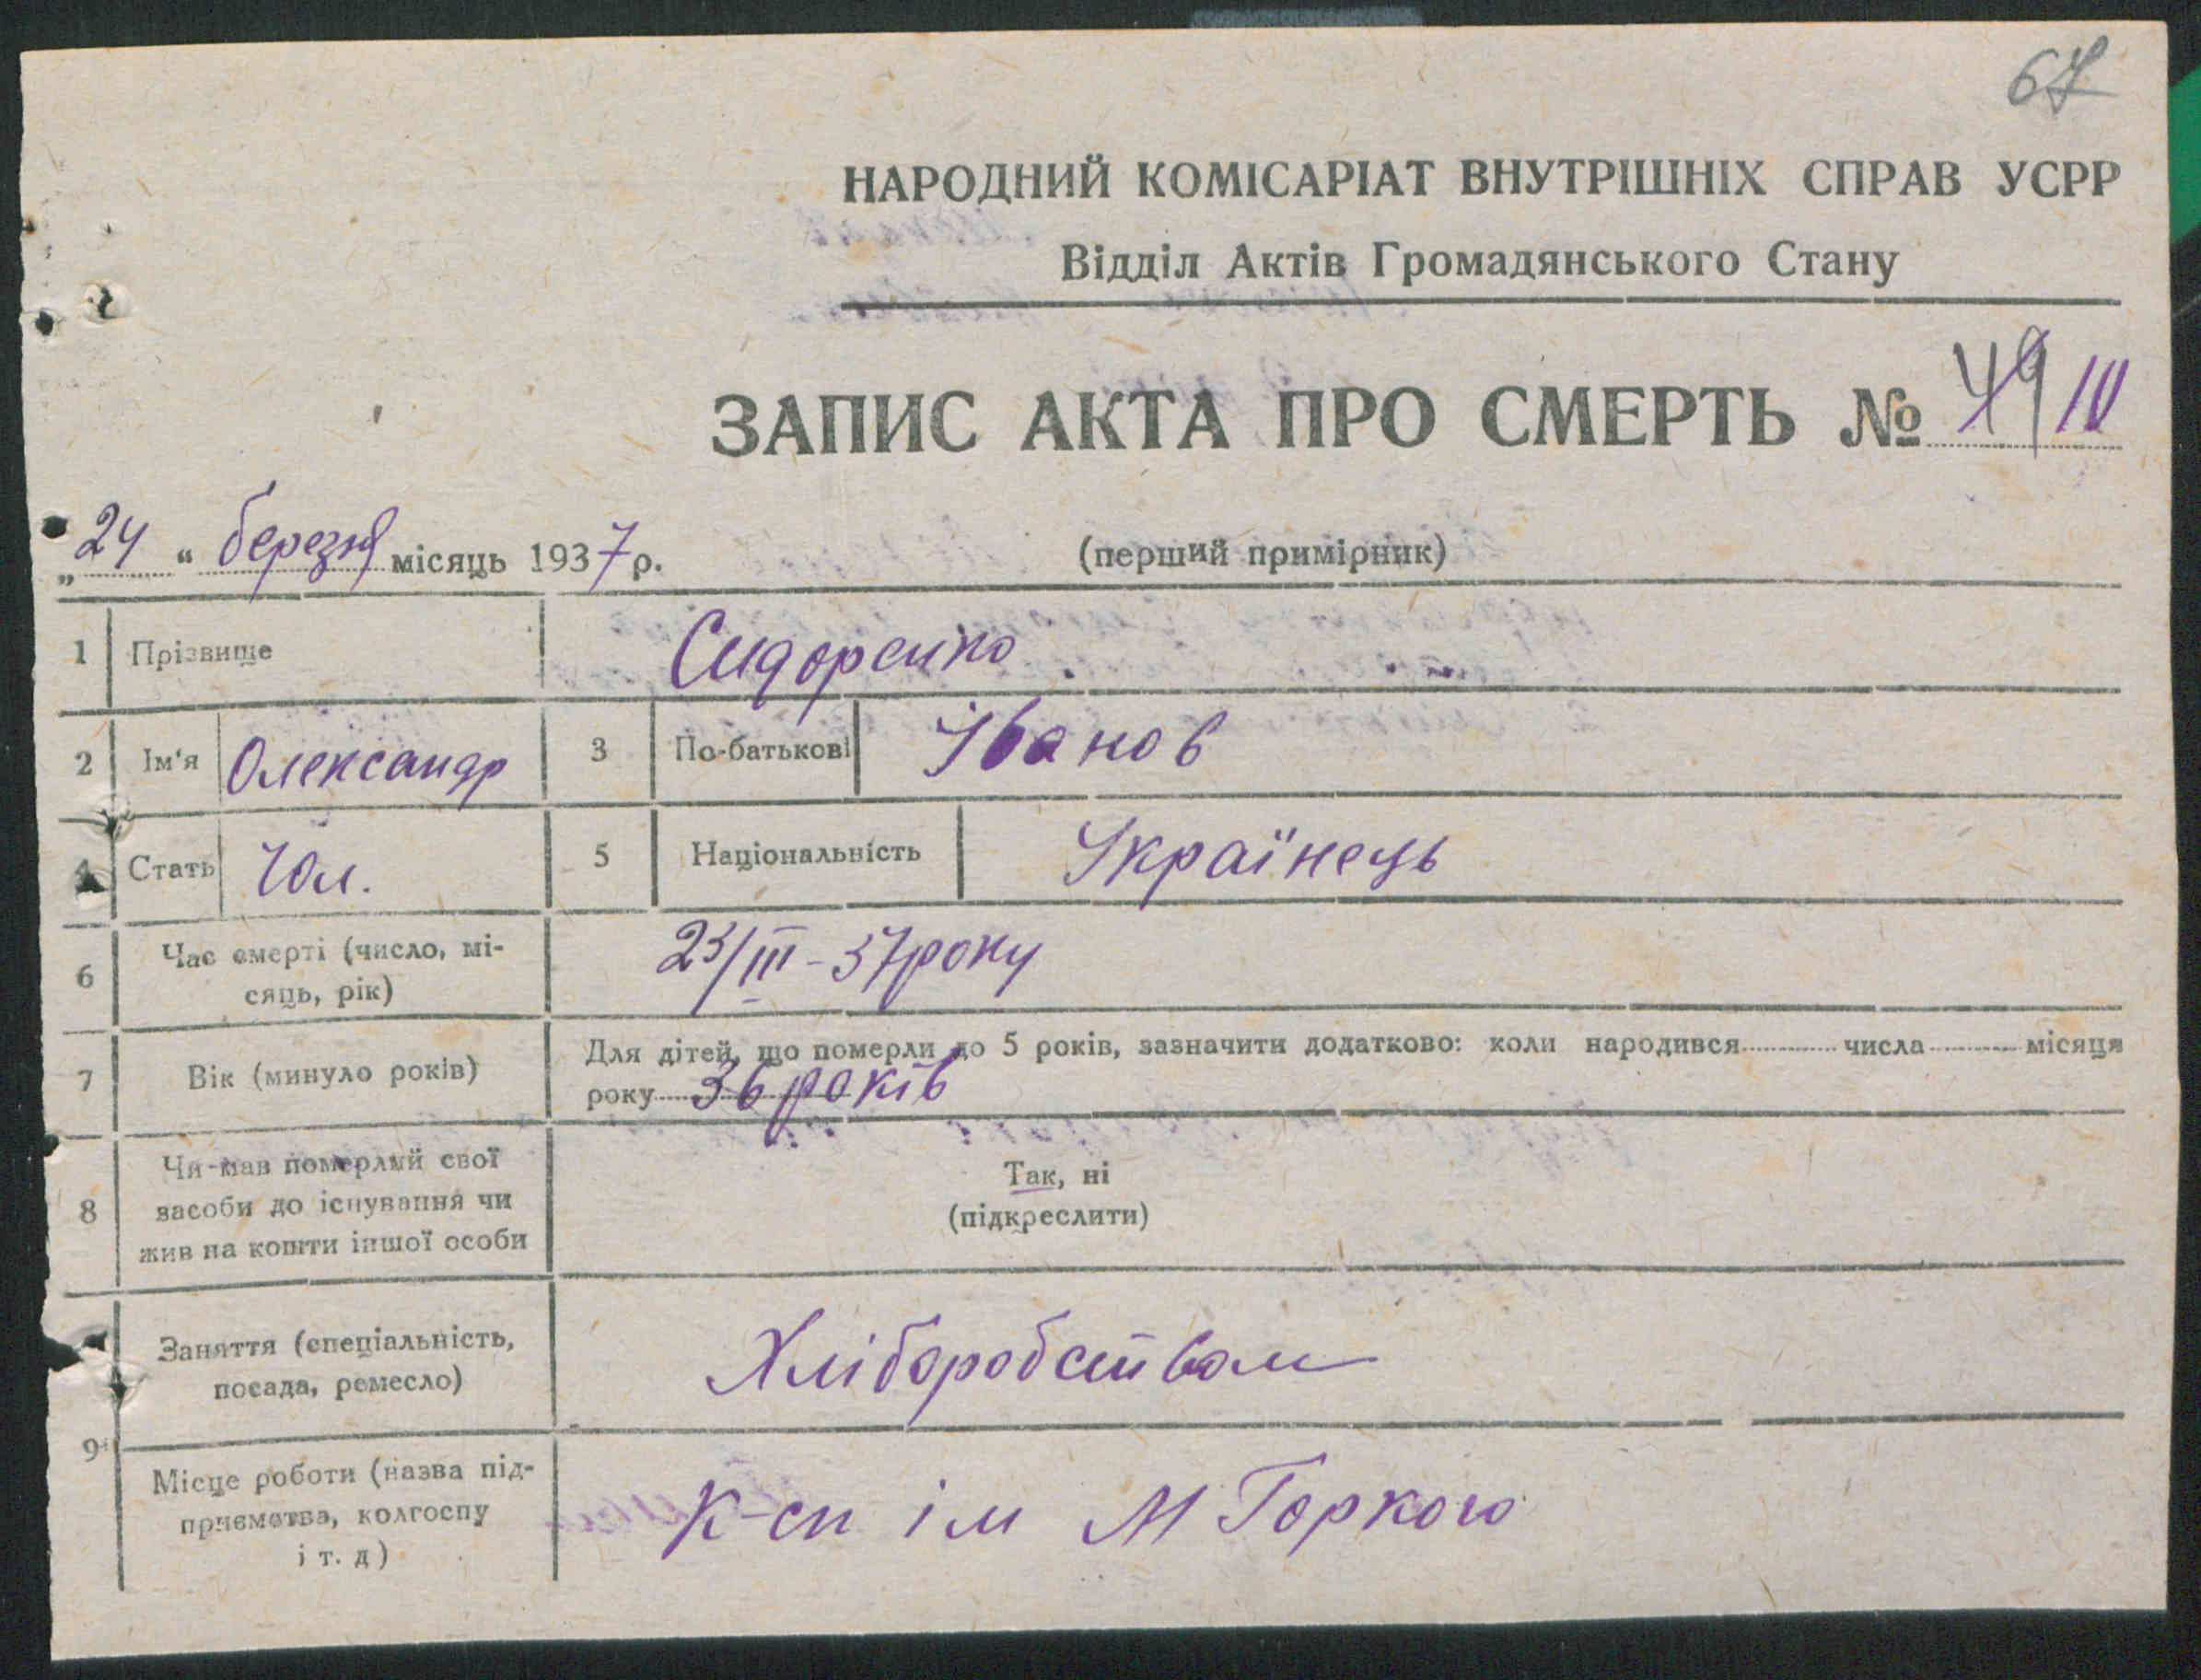 67
НАРОДНИЙ КОМІСАРІАТ ВНУТРІШНІХ СПРАВ УСРР
Відділ Актів Громадянського Стану
ЗАПИС АКТА ПРО СМЕРТЬ № 49
„24“ березня місяць 1937 р. (перший примірник)
1 Прізвище Сидоренко
2 Ім'я Олександр 3 По-батькові Іванов
4 Стать Чол. 5 Національність Українець
6 Час смерті (число, мі-
сяць, рік) 23/III-37 року
7 Вік (минуло років) Для дітей, що померли до 5 років, зазначити додатково: коли народився числа місяця
року 36 років
8 Чи мав померлий свої
засоби до існування чи
жив на кошти іншої особи
Так, ні
(підкреслити)
9 Заняття (спеціальність,
посада, ремесло) Хліборобством
Місце роботи (назва під-
приємства, колгоспу
і т. д) К-сп ім М Горкого